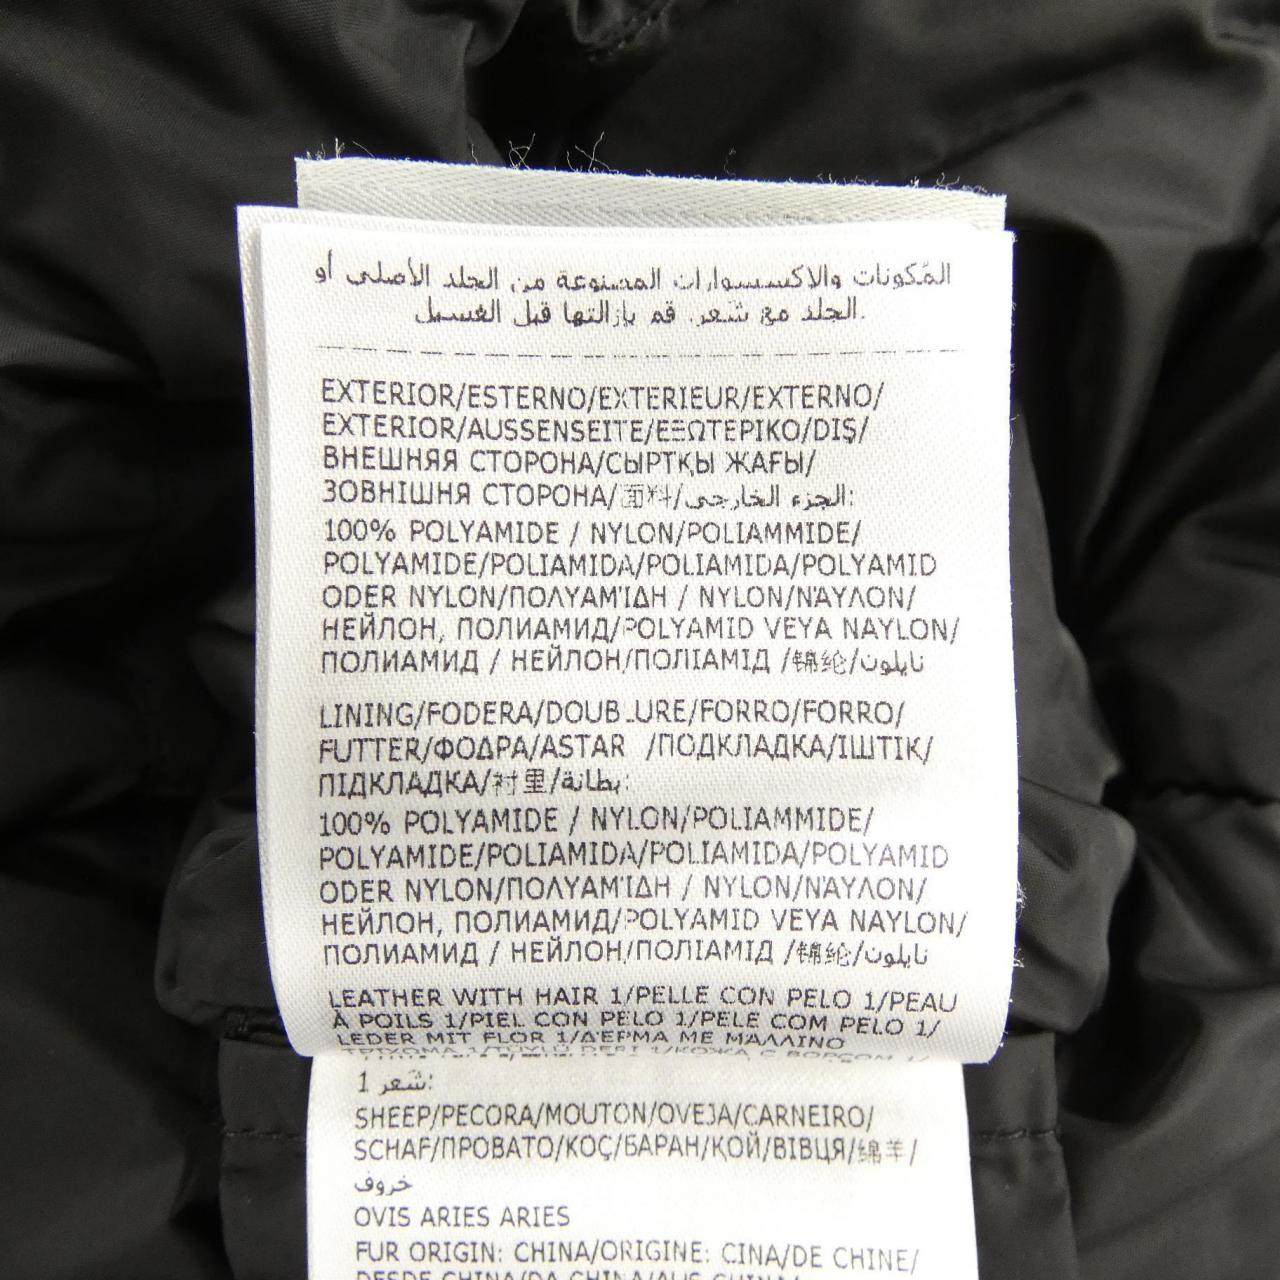 المكونات والاكسسوارات المصنوعة من الجلد الأصلي أو
الجلد مع شعر. قم بإزالتها قبل الغسيل.
EXTERIOR/ESTERNO/EXTERIEUR/EXTERNO/
EXTERIOR/AUSSENSEITE/ΕΞΩΤΕΡΙΚΟ/DIŞ/
ВНЕШНЯЯ СТОРОНА/СЫРТҚЫ ЖАҒЫ/
ЗОВНІШНЯ СТОРОНА/面料/الجزء الخارجي:
100% POLYAMIDE / NYLON/POLIAMMIDE/
POLYAMIDE/POLIAMIDA/POLIAMIDA/POLYAMID
ODER NYLON/ΠΟΛΥΑΜΊΔΗ / NYLON/ΝΆΥΛΟΝ/
НЕЙЛОН, ПОЛИАМИД/POLYAMID VEYA NAYLON/
ПОЛИАМИД / НЕЙЛОН/ПОЛІАМІД /锦纶/نايلون
LINING/FODERA/DOUBLURE/FORRO/FORRO/
FUTTER/ΦΟΔΡΑ/ASTAR /ПОДКЛАДКА/ІШТІК/
ПІДКЛАДКА/衬里/بطانة:
100% POLYAMIDE / NYLON/POLIAMMIDE/
POLYAMIDE/POLIAMIDA/POLIAMIDA/POLYAMID
ODER NYLON/ΠΟΛΥΑΜΊΔΗ / NYLON/ΝΆΥΛΟΝ/
НЕЙЛОН, ПОЛИАМИД/POLYAMID VEYA NAYLON/
ПОЛИАМИД / НЕЙЛОН/ПОЛІАМІД /锦纶/نايلون
LEATHER WITH HAIR 1/PELLE CON PELO 1/PEAU
À POILS 1/PIEL CON PELO 1/PELE COM PELO 1/
LEDER MIT FLOR 1/ΔΈΡΜΑ ΜΕ ΜΆΛΛΙΝΟ
ΤΡΙΧΩΜΑ 1/TÜYLÜ DERİ 1/КОЖА С ВОРСОМ 1/
شعر 1:
SHEEP/PECORA/MOUTON/OVEJA/CARNEIRO/
SCHAF/ΠΡΟΒΑΤΟ/KOÇ/БАРАН/ҚОЙ/ВІВЦЯ/绵羊/
خروف
OVIS ARIES ARIES
FUR ORIGIN: CHINA/ORIGINE: CINA/DE CHINE/
DESDE CHINA/DA CHINA/AUS CHINA/